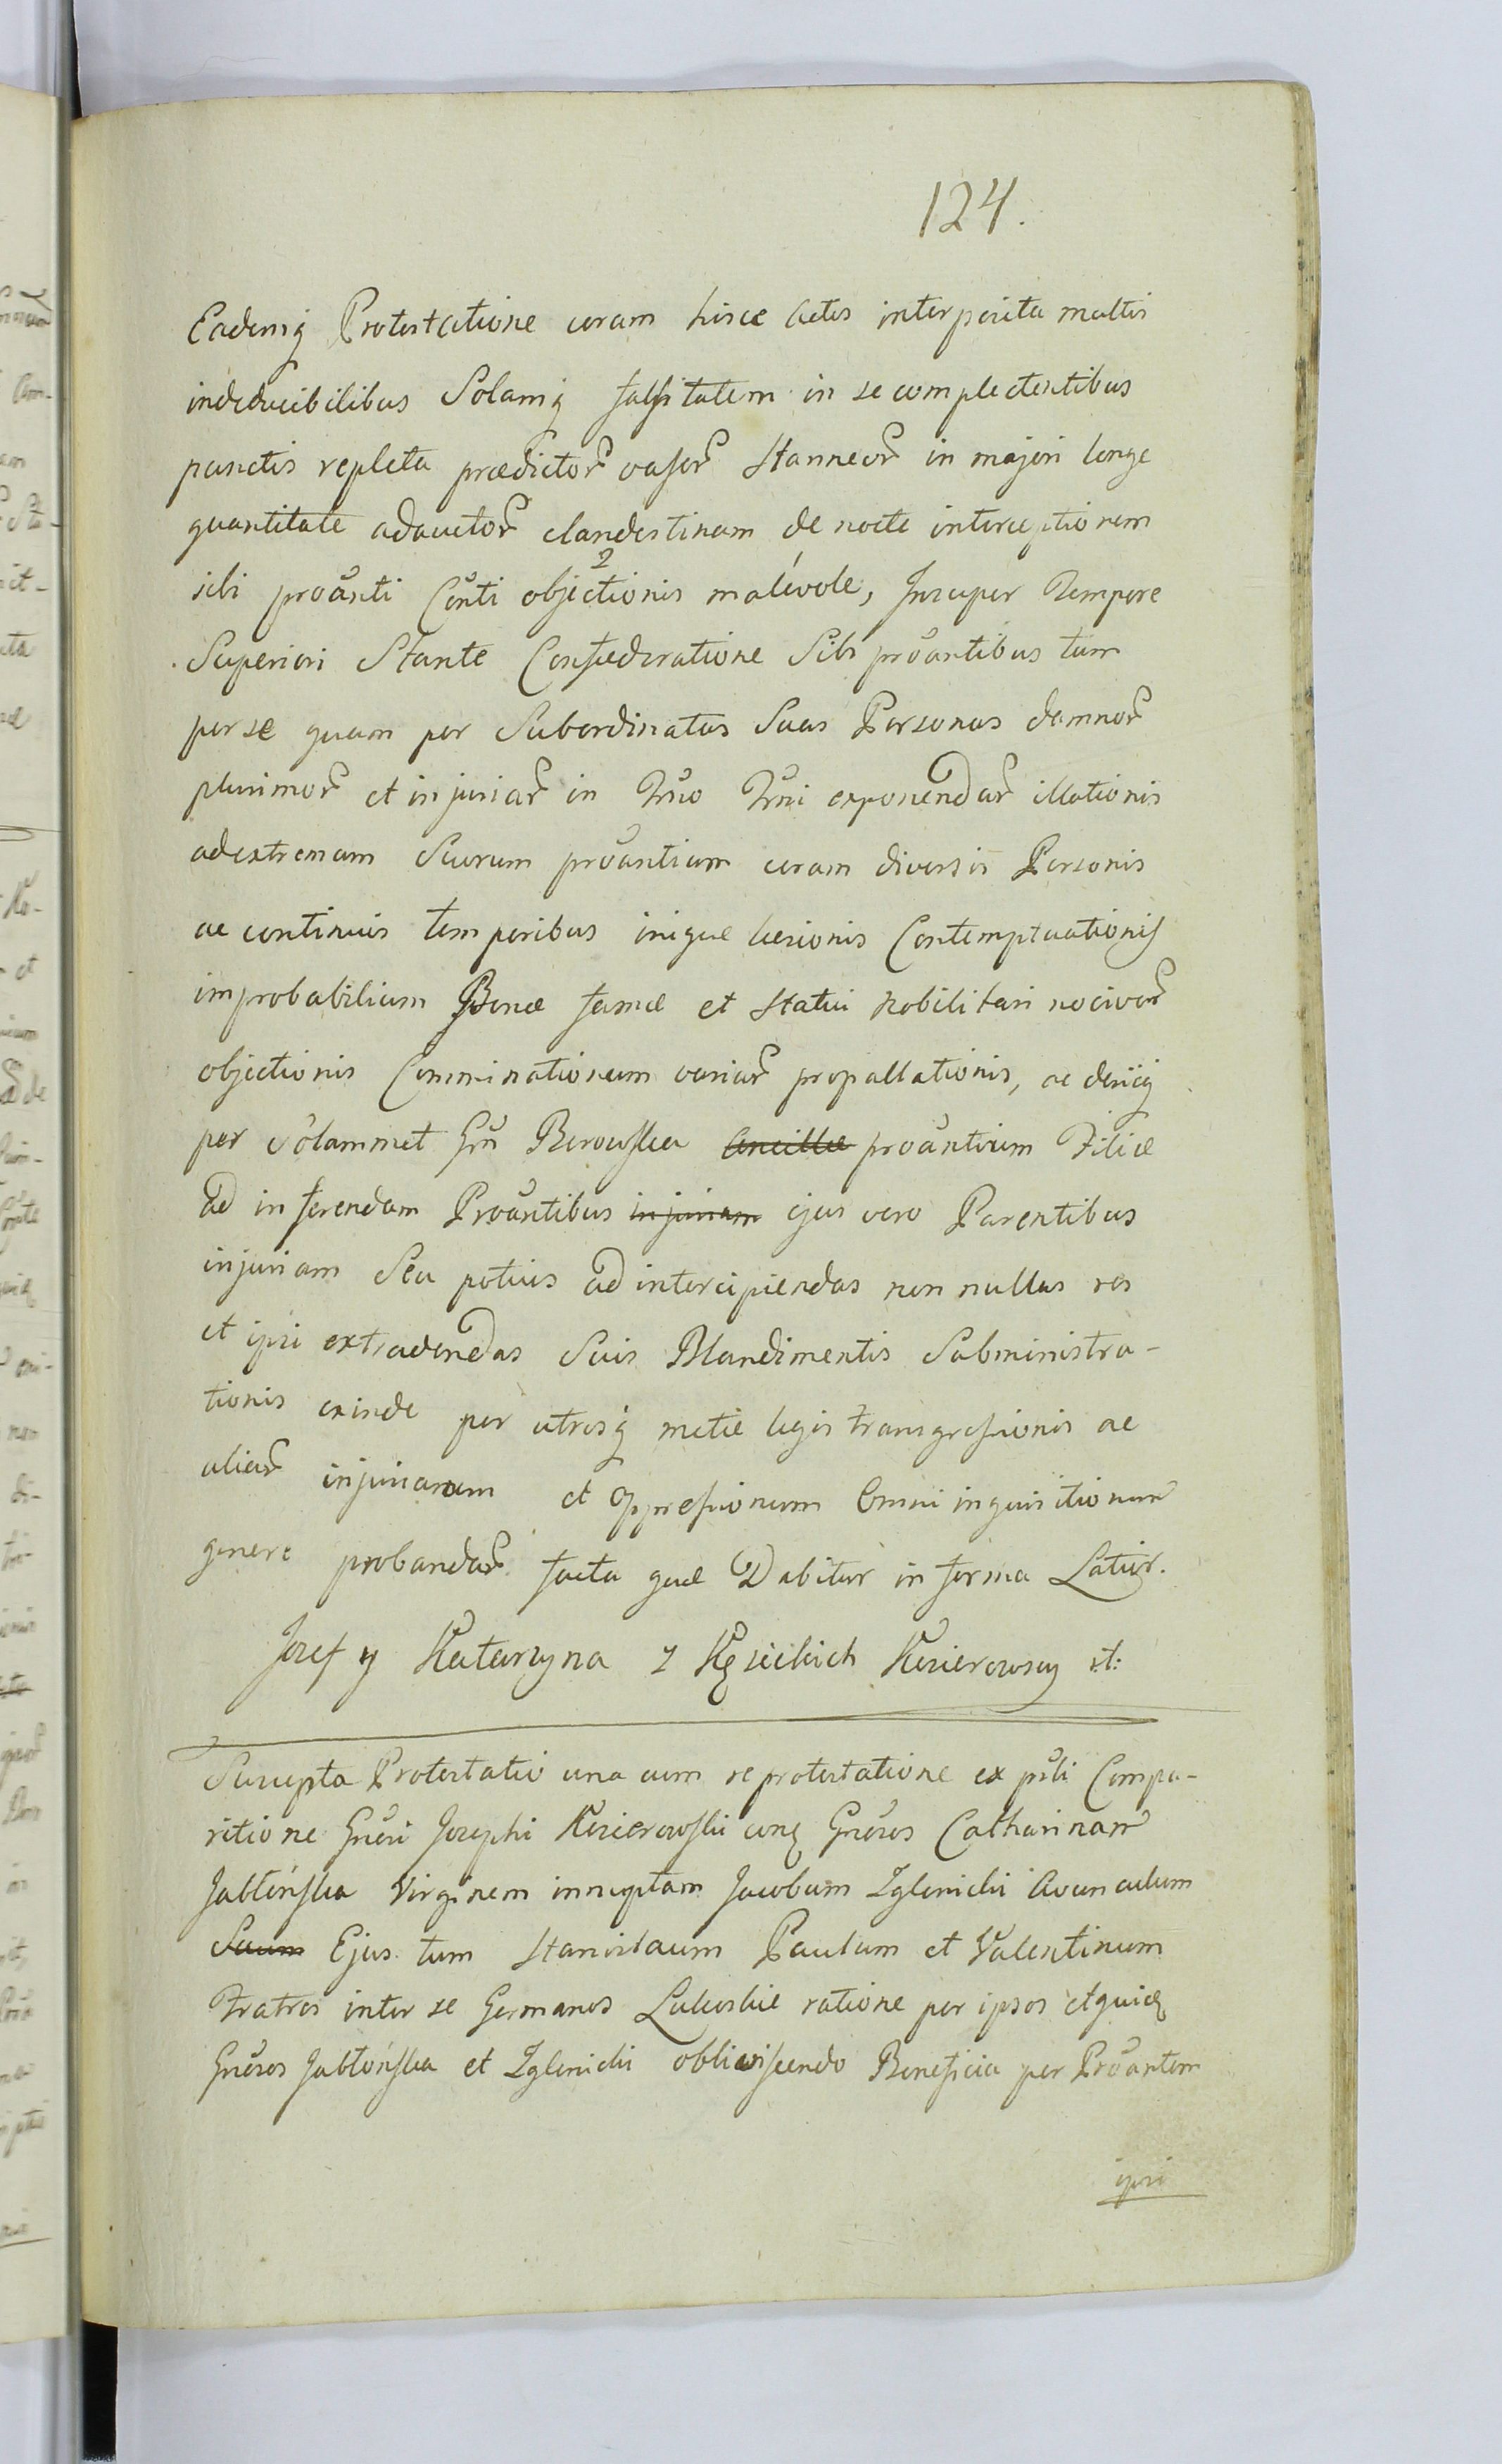 124.
Eademq Protestatione coram hisce Actis interposita multis
indeducibilibus Solamq falsitatem in se complectentibus
punctis repleta prædictor̃ vasor̃ Stanneor̃ in majori longe
quantitate adauctor̃ clandestinam de nocte interceptionem
sibi proãnti Cõnti objectionis malévole, Insuper Tempore
Superiori Stante Confœderatione Sibi proãntibus tum
per se quam per Subordinatas Suas Personas damnor̃
plurimor̃ et injuriar̃ in Trṽo Trṽi exponendar̃ illationis
ad extremam Suorum proãntium coram diversis Personis
ac continuis temporibus inique læsionis Contemptuationis
improbabilium Bonæ famæ et Statui Nobilitari nocivor̃
objectionis Comminationum variar̃ propallationis, ac deniq
per Solammet Grñ Borowska Ancillæ proãntium Filiæ
ad inferendam Proãntibus injuriam ejus vero Parentibus
injuriam Seu potius ad intercipiendas non nullas res
et ipsi extradendas Suis Blandimentis Subministra-
tionis exinde per utrosq metæ legis transgressionis ac
aliar̃ injuriarum et Oppressionum Omni inquisitionum
genere probandar̃ facta quæ Dabitur in forma Latior̃.
Jozef y Katarzyna z Kęsickich Kosierowscy
Suscepta Protestatio una cum reprotestatione ex pr̃li Compa-
ritione Gñeri Josephi Kosierowski conq Gñosos Catharinam
Jabłońska Virginem innuptam Jacobum Zglenicki Avunculum
Suum Ejus tum Stanislaum Paulum et Valentinum
Fratres inter se Germanos Lukoskie ratione per ipsos et quidq
Gñosos Jabłońska et Zglenicki obliviscendo Beneficia per Proãntem
ipsi